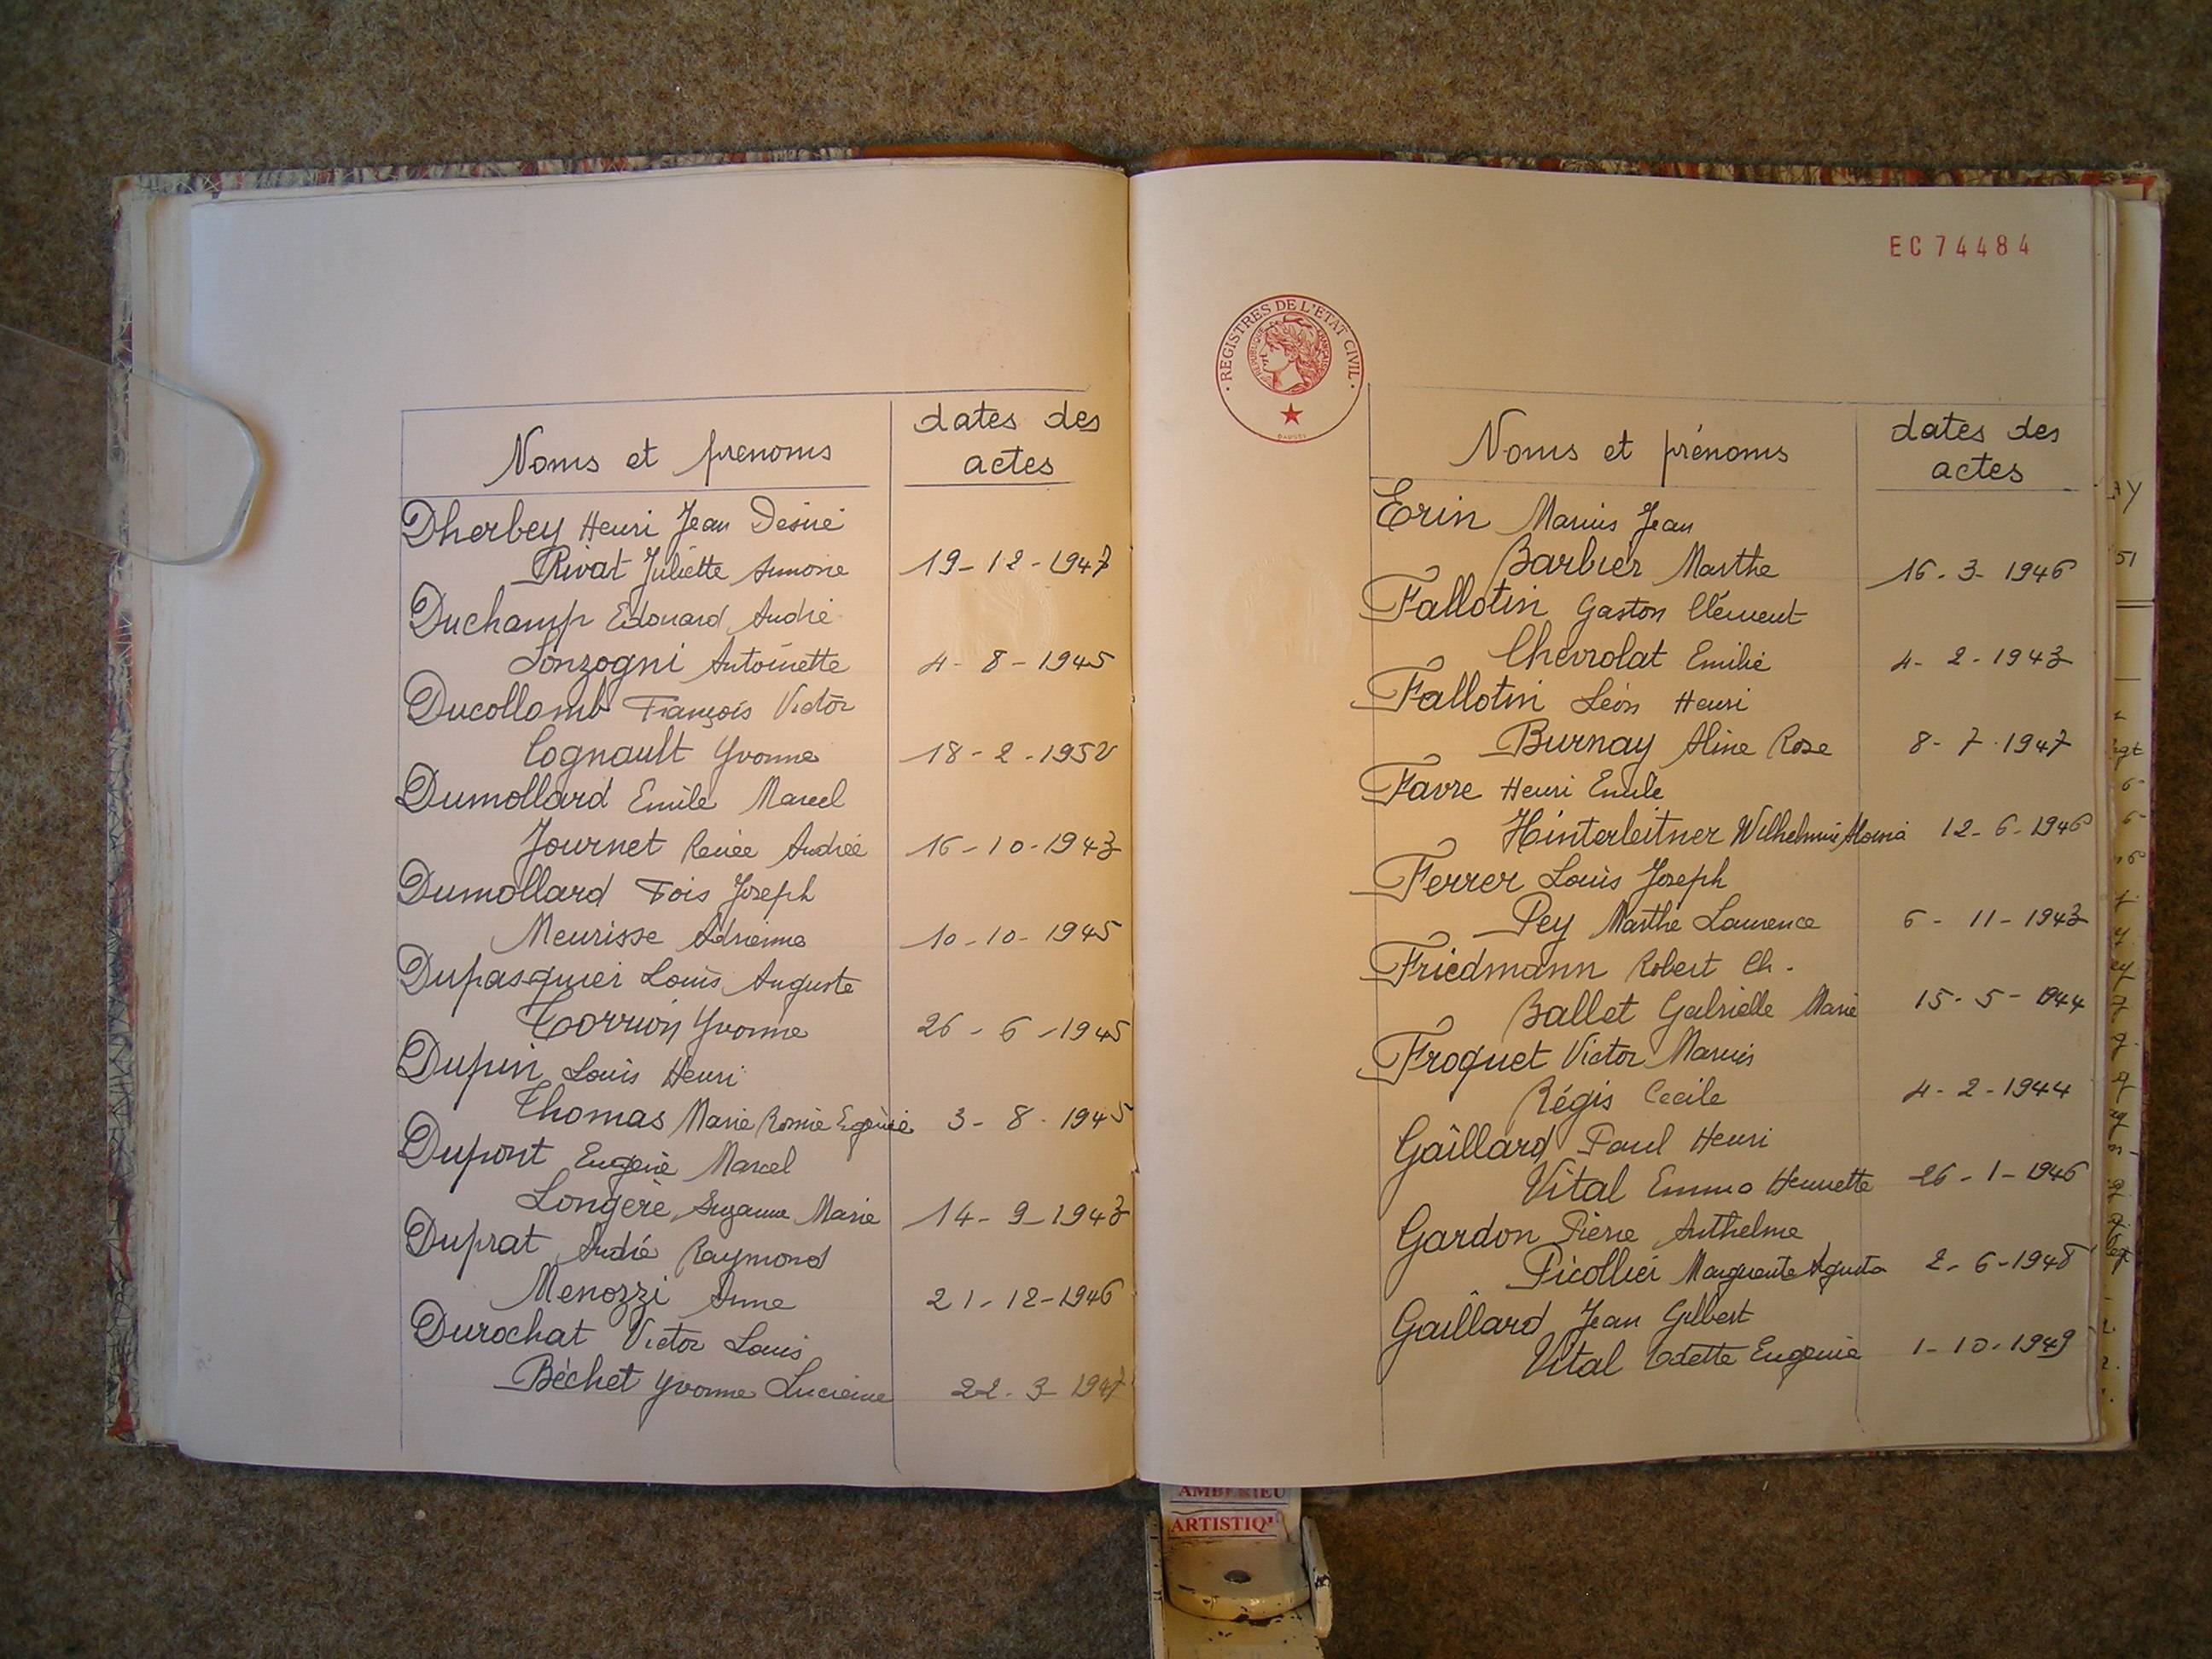 Noms et prenoms
dates des
actes
Dherbey Henri Jean Desiré
Rivat Juliette Simone 19-12-1947
Duchamp Edouard André
Sonzogni Antoinette 4-8-1945
Ducollomb François Victor
Cognault Yvonne 18-2-1950
Dumollard Emile Marcel
Journet Renée Andrée 16-10-1943
Dumollard Fois Joseph
Meurisse Adrienne 10-10-1945
Dupasquier Louis Auguste
Corrion Yvonne 26-6-1945
Dupin Louis Henri
Thomas Marie Eugénie 3-8-1945
Dupont Eugène Marcel
Longère Suzanne Marie 14-9-1943
Duprat André Raymond
Menozzi Anne 21-12-1946
Durochat Victor Louis
Béchet Yvonne Lucienne 22-3-1947
EC 74484
REGISTRES DE L'ETAT CIVIL
REPUBLIQUE FRANÇAISE
Noms et prénoms
dates des
actes
Erin Marius Jean
Barbier Marthe 16-3-1946
Fallotin Gaston Clément
Chevrolat Emilie 4-2-1943
Fallotin Léon Henri
Burnay Aline Rose 8-7-1947
Favre Henri Emile
Hinterleitner Wilhelmine 12-6-1946
Ferrer Louis Joseph
Pey Marthe Laurence 6-11-1943
Friedmann Robert Ch.
Ballet Gabrielle Marie 15-5-1944
Froquet Victor Marius
Régis Cecile 4-2-1944
Gaîllard Paul Henri
Vital Emma Henriette 26-1-1946
Gardon Pierre Anthelme
Picollier Marguerite 2-6-1948
Gaîllard Jean Gilbert
Vital Odette Eugenie 1-10-1949
AMBERIEU
ARTISTIQ